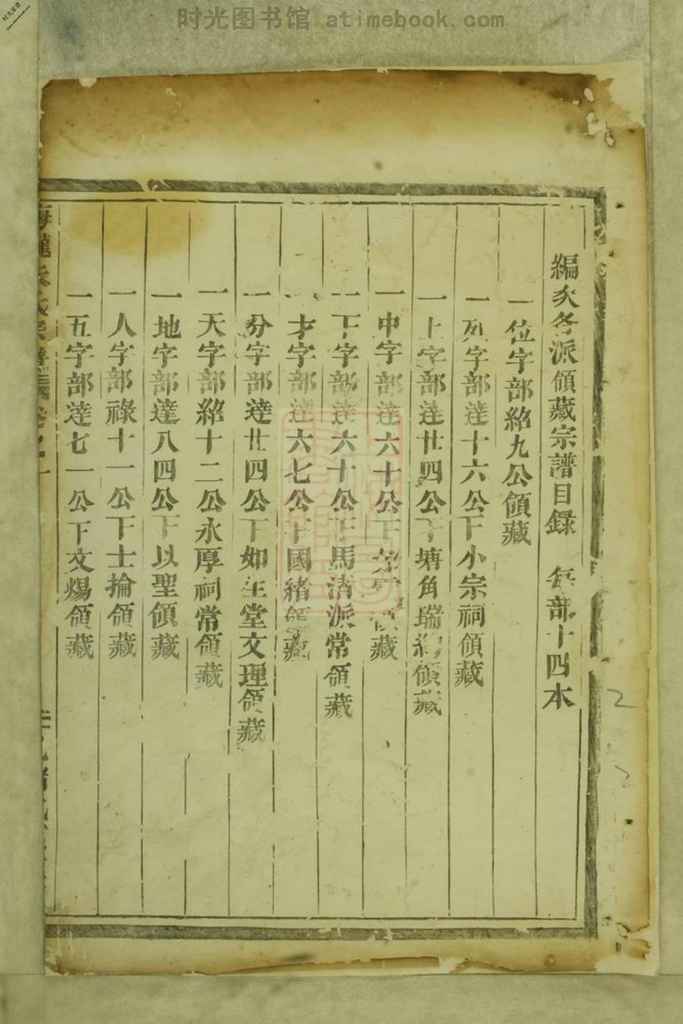 时光图书馆 atimebook.com
編次各派領藏宗譜目錄 每部十四本
一位字部紹九公領藏
一列字部達十六公下小宗祠領藏
一上字部達廿四公下塘角瑞 領藏
一中字部達六十公下 領藏
一下字部達六十公下馬清派常領藏
一才字部達六七公下國緒領藏
一分字部達廿四公下如在堂文理領藏
一天字部紹十二公永厚祠常領藏
一地字部達八四公下以聖領藏
一人字部祿十一公下士掄領藏
一五字部達七一公下文煬領藏